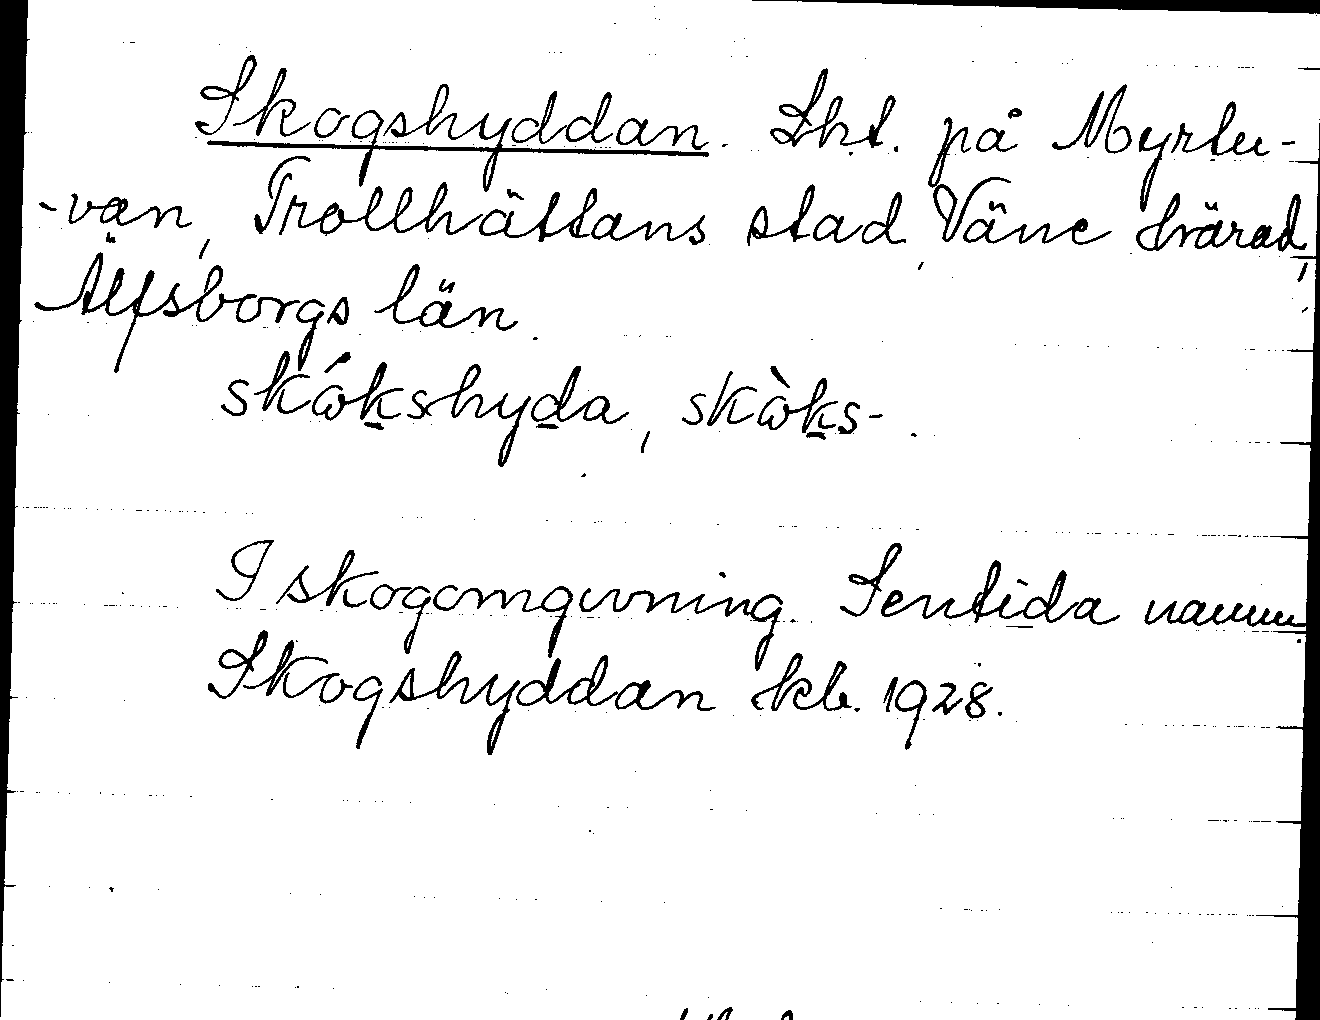 Skogshyddan. Lht. på Myrtu-
-van, Trollhättans stad, Väne härad,
Älfsborgs län.
skώkshyda, skὼks-.
I skogomgivning. Sentida namn.
Skogshyddan kb. 1928.